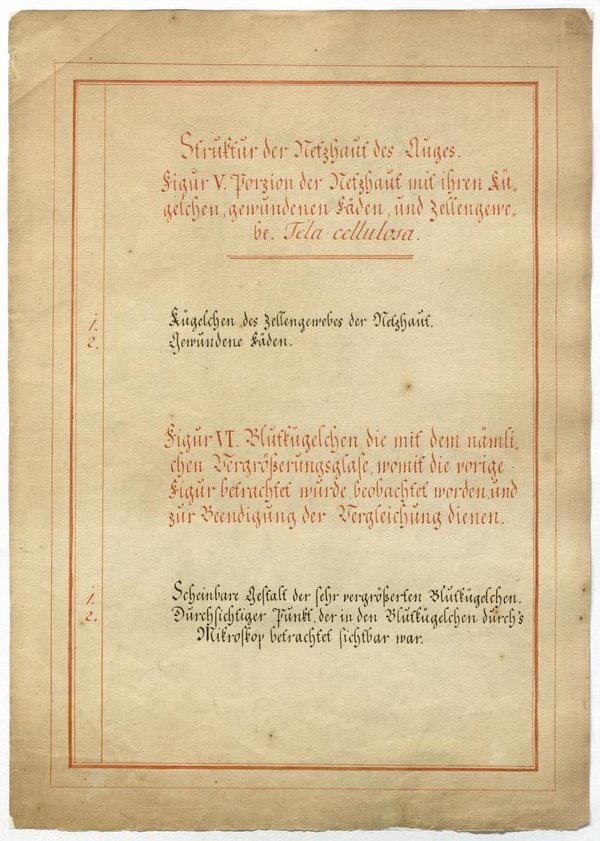 Struktur der Netzhaut des Auges.
Figur V. Porzion der Netzhaut mit ihren Kü-
gelchen, gewundenen Fäden, und Zellengewe-
be. Tela cellulosa.
1. Kügelchen des Zellengewebes der Netzhaut.
2. Gewundene Fäden.
Figur VI. Blutkügelchen die mit dem nämli-
chen Vergrößerungsglase, womit die vorige
Figur betrachtet wurde, beobachtet worden, und
zur Beendigung der Vergleichung dienen.
1. Scheinbare Gestalt der sehr vergrößerten Blutkügelchen.
2. Durchsichtiger Punkt, der in den Blutkügelchen durch's
Mikroskop betrachtet sichtbar war.